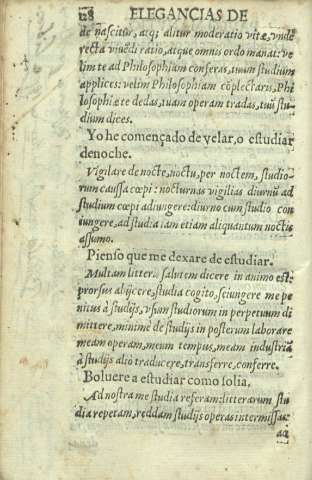 128 ELEGANCIAS DE
de nascitur, atq; alitur moderatio vitæ, vnde
recta viuēdi ratio, atque omnis ordo manat: ve
lim te ad Philosophiam conferas, tuum studium
applices: velim Philosophiam cōplectaris, Phi
losophiæ te dedas, tuam operam tradas, tuū stu-
dium dices.
Yo he començado de velar, o estudiar
de noche.
Vigilare de nocte, noctu, per noctem, studio-
rum caussa cœpi: nocturnas vigilias diurnū ad
studium cœpi adiungere: diurno cum studio con
iungere, ad studia iam etiam aliquantum noctis
assumo.
Pienso que me dexare de estudiar.
Multam litter. salutem dicere in animo est:
prorsus abijcere, studia cogito, seiungere me pe
nitus à studijs, vsum studiorum in perpetuum di
mittere, minimè de studijs in posterum laborare
meam operam, meum tempus, meam industriā
à studijs aliò traducere, transferre, conferre.
Boluere a estudiar como solia.
Ad nostra me studia referam: litterarum stu
dia repetam, reddam studijs operas intermissas: